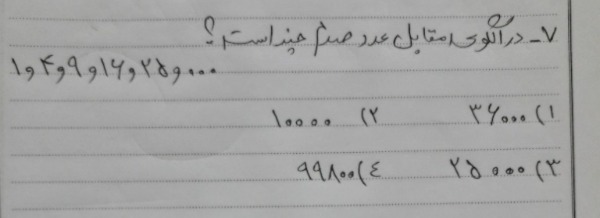 ۷- در الگوی مقابل عدد صدم چند است؟
۱و۴و۹و۱۶و۲۵و...
۱) ۳۶۰۰۰ ۲) ۱۰۰۰۰
۳) ۲۵۰۰۰ ۴) ۹۹۸۰۰